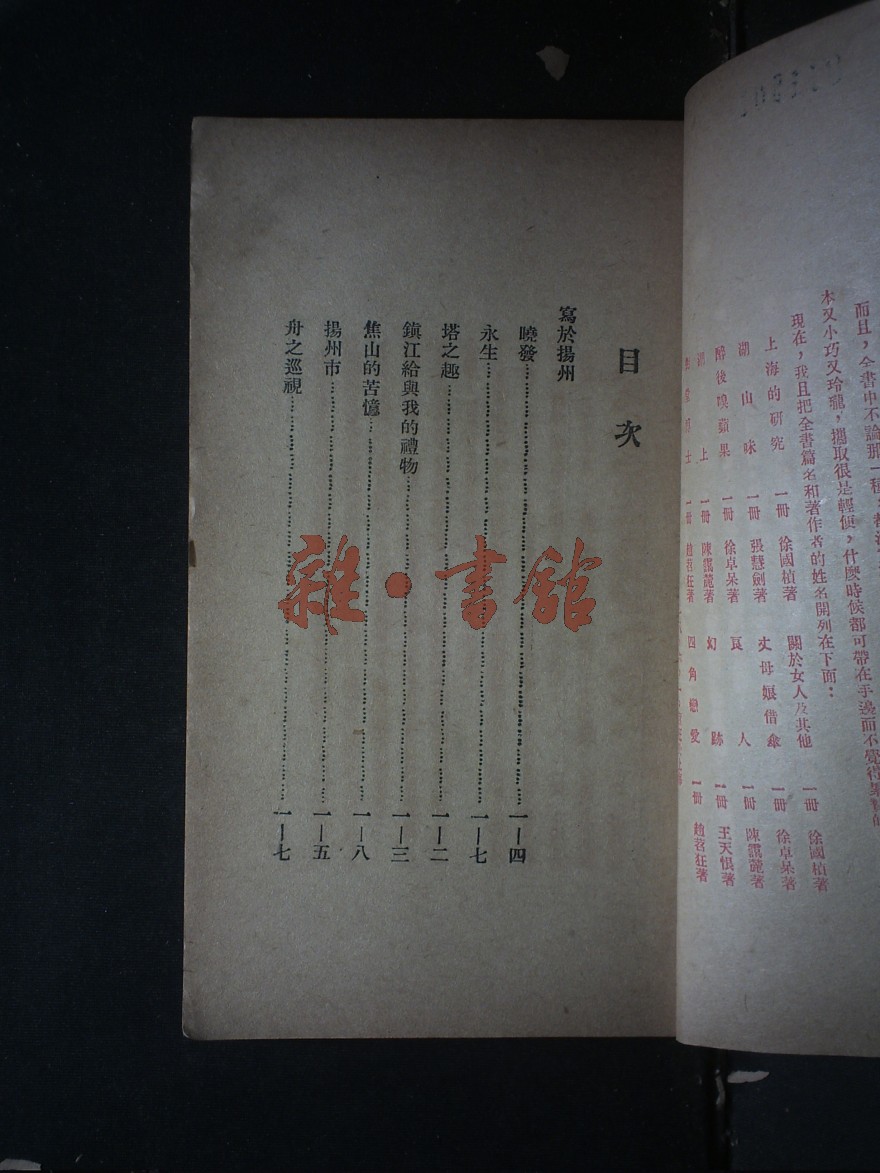 而且，全書中不論那一種，
本又小巧又玲瓏，攜取很是輕便，什麼時候都可帶在手邊而不覺得累贅的
現在，我且把全書篇名和著作者的姓名開列在下面：
上海的研究 一冊 徐國楨著 關於女人及其他 一冊 徐國楨著
湖山味 一冊 張慧劍著 丈母娘借傘 一冊 徐卓呆著
醉後嗅蘋果 一冊 徐卓呆著 良人 一冊 陳靄麓著
湖上 一冊 陳靄麓著 幻跡 一冊 王天恨著
士 一冊 趙苕狂著 四角戀愛 一冊 趙苕狂著
目次
寫於揚州
曉發 一—四
永生 一—七
塔之趣 一—二
鎮江給與我的禮物 一—三
焦山的苦憶 一—八
揚州市 一—五
舟之巡視 一—七
雜·書館